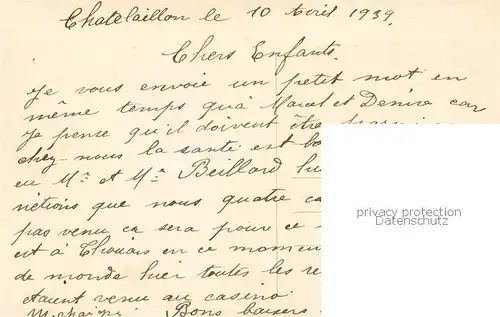 Chatelaillon le 10 Avril 1939.
Chers Enfants.
Je vous envoie un petit mot en
même temps qua Marcel et Denise car
Je pense qu'il doivent être
chez-nous la santé est
eu Mr et Me Beillard
nctions que nous quatre
pas venu ca sera pour ce
est à Thouars en ce moment
de monde hier toutes les
étaient venu au casino.
Bons baisers
privacy protection
Datenschutz